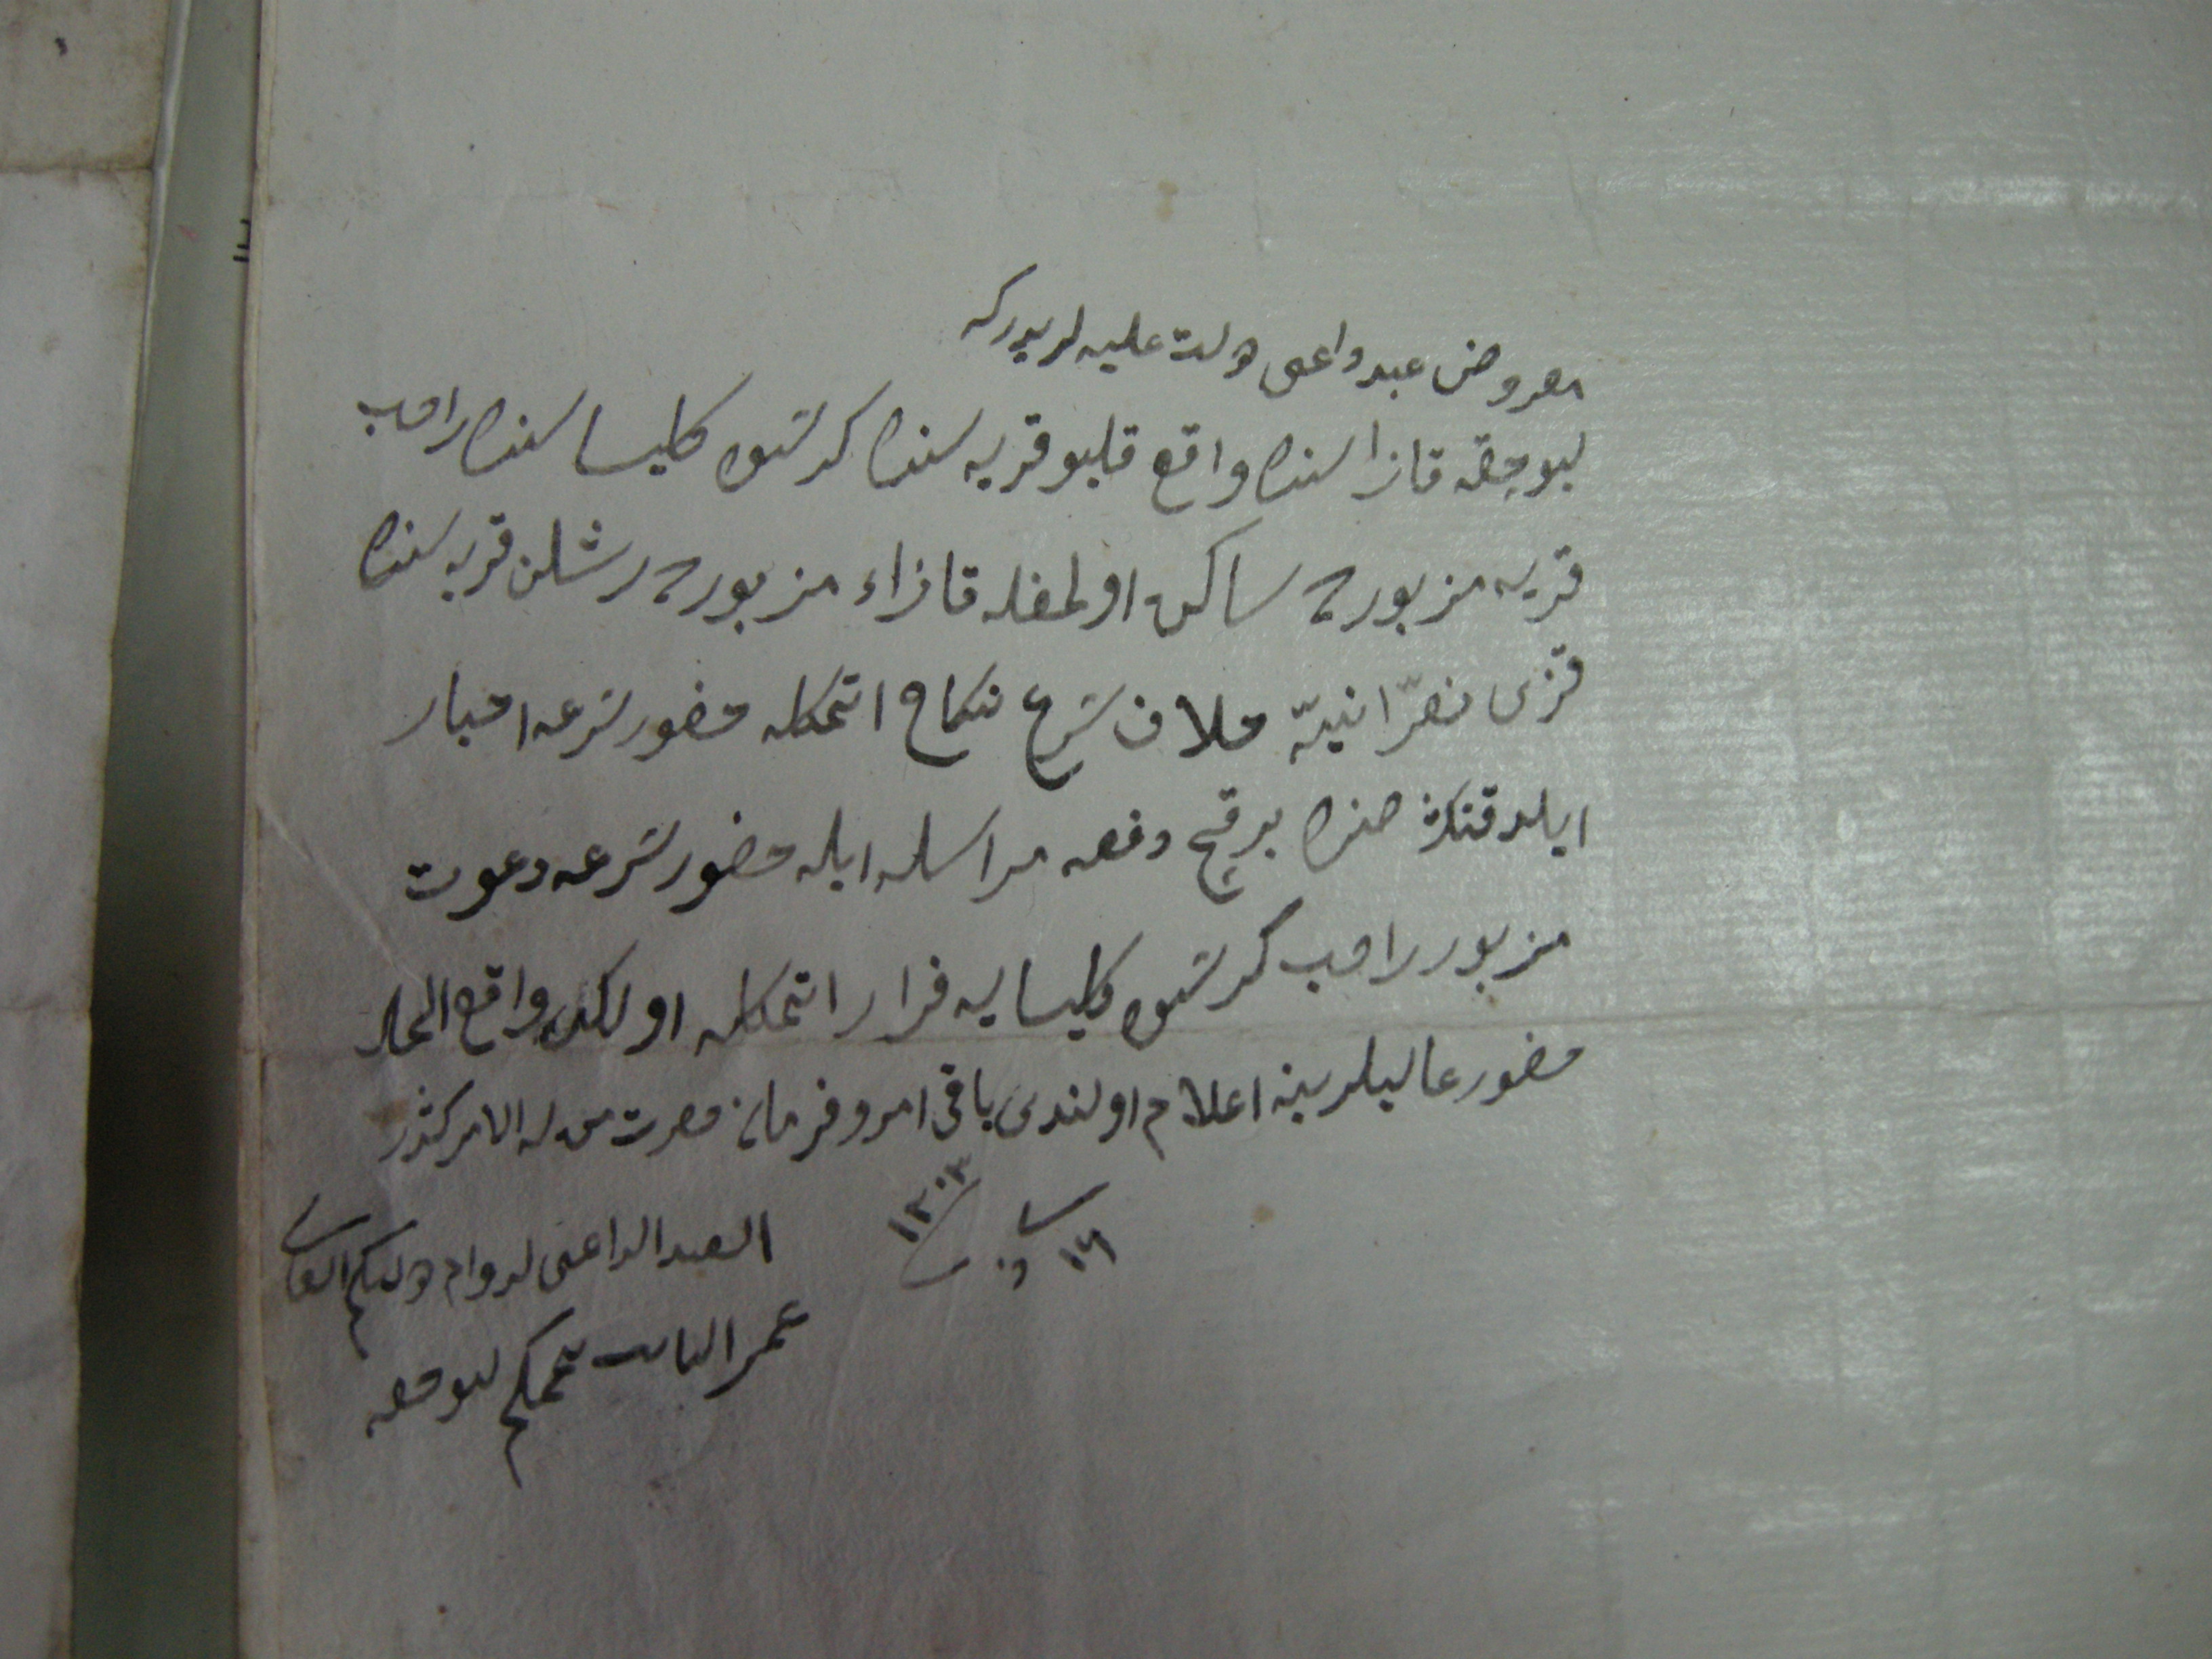 معروض عبد داعی دولت علیه لریدركه
لبوجقه قازاسنده واقع قلبو قریه سنده كرشوه كلیساسنده راهب
قریه مزبورده ساكن اولمغله قازاء مزبورده رشلن قریه سنده
قزی نصرّانیّه خلاف شرع نكاح اتمكله حضور شرعه احبار
ایلدقنده برقچ دفعه مراسله ایله حضور شرعه دعوت
مزبور راهب كرشوه كلیسایه فرار اتمكله اولكه واقع الحال
حضور عالیلرینه اعلام اولندی باقی امر و فرمان حضرت من له الامر كندر
١٦ ١٢٠٣
العبد الداعی لدوام دولتكم
عمر النائب بمحكمه لبوجقه